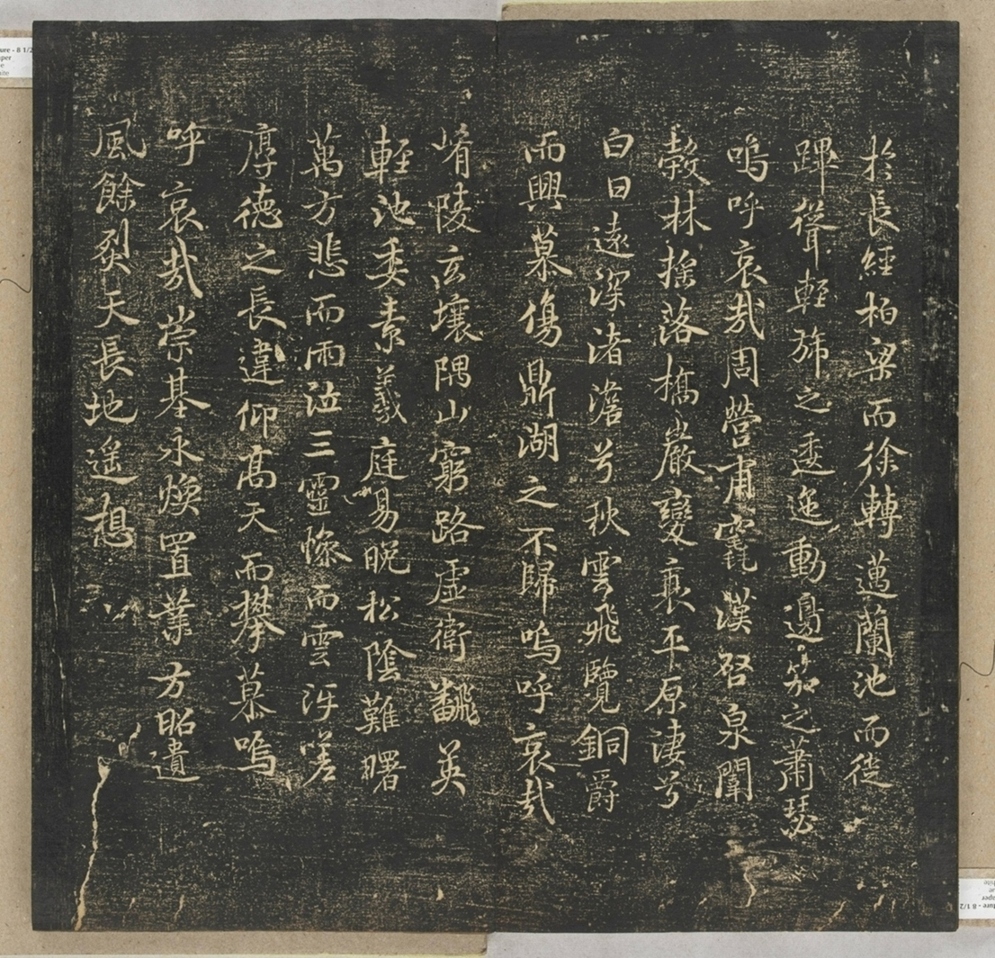 於長經柏梁而徐轉邁蘭池而徙
蹕聳輕旆之逶迤動邊笳之蕭瑟
嗚呼哀哉周營甫竁漢啓泉闈
穀林搖落橋巖變衰平原淒兮
白日遠深渚澹兮秋雲飛覽銅爵
而興慕傷鼎湖之不歸嗚呼哀哉
崤陵玄壤隅山窮路虛衛飜英
輕池委素羲庭易晚松陰難曙
萬方悲而雨泣三靈慘而雲冱嗟
厚德之長違仰高天而攀慕嗚
呼哀哉崇基永煥置業方昭遺
風餘烈天長地遙想